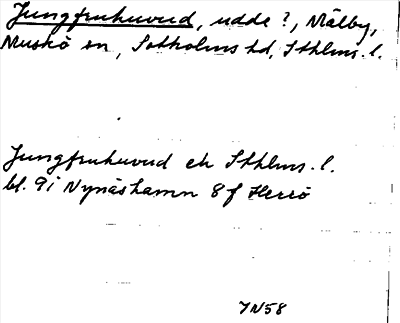 Jungfruhuvud, udde?, Mälby,
Muskö sn, Sotholms hd, Sthlms. l.
Jungfruhuvud ek Sthlms. l.
bl. 9i Nynäshamn 8f Herrö
IN58